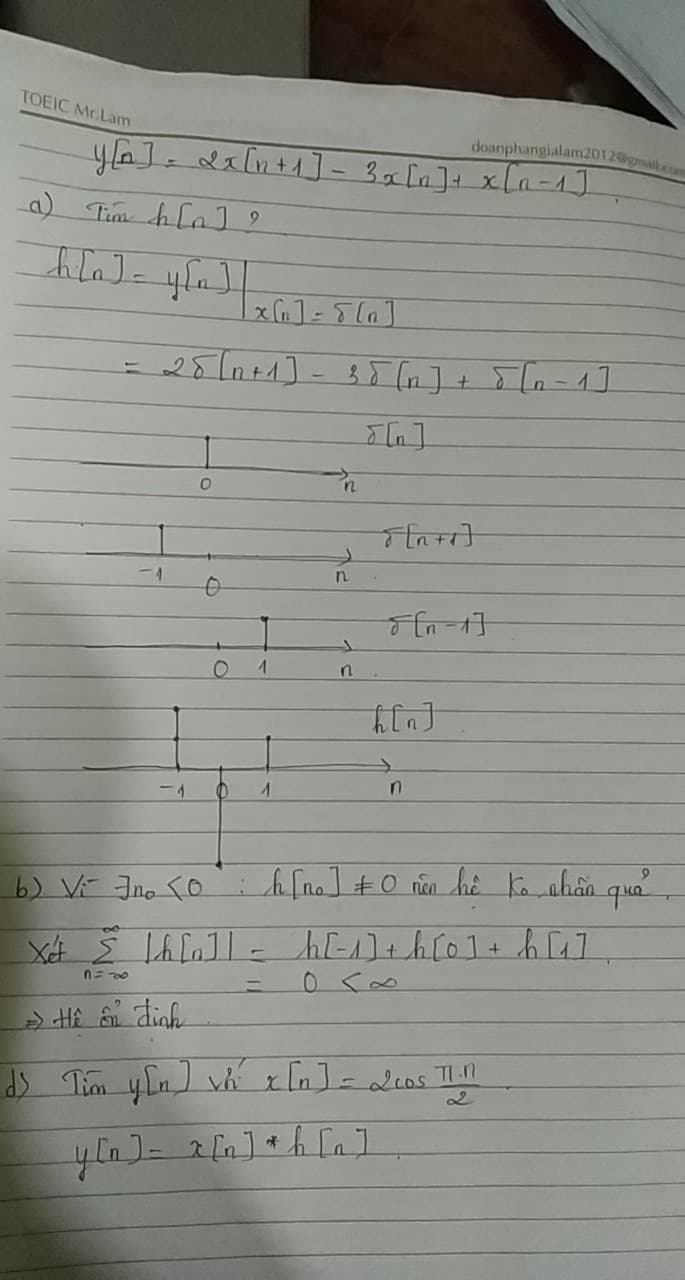 TOEIC Mr.Lam
doanphangialam2012@gmail.com
y[n] = 2x[n+1] - 3x[n] + x[n-1].
a) Tìm h[n] ?
h[n] = y[n] | x[n] = δ[n]
= 2δ[n+1] - 3δ[n] + δ[n-1]
δ[n]
0 n
δ[n+1]
-1 0 n.
δ[n-1]
0 1 n.
h[n]
-1 0 1 n
b) Vì ∃n₀ < 0 : h[n₀] ≠ 0 nên hệ ko nhân quả.
Xét ∞ Σ n=-∞ |h[n]| = h[-1] + h[0] + h[1].
= 0 < ∞
⇒ Hệ ổn định.
d) Tìm y[n] với x[n] = 2cos π.n/2.
y[n] = x[n] * h[n].